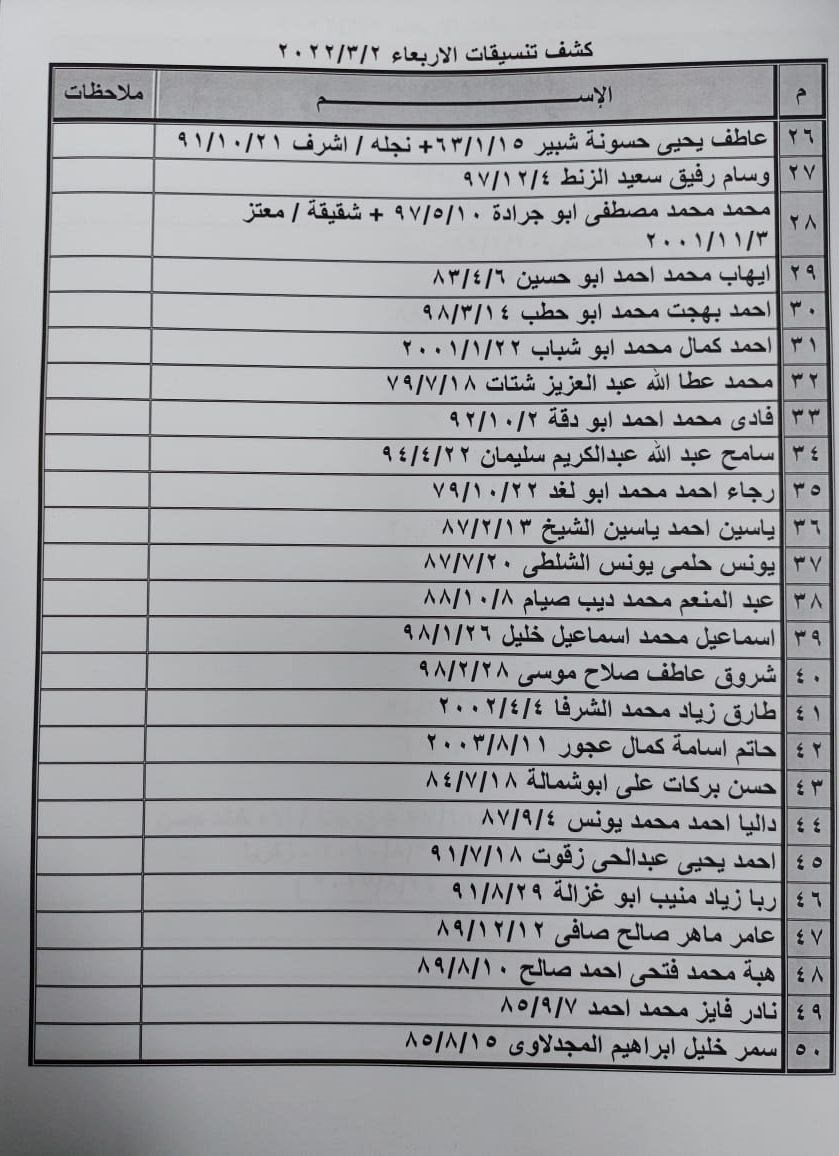 كشف تنسيقات الاربعاء ٢٠٢٢/٣/٢
م الإســـــم ملاحظات
٢٦ عاطف يحيى حسونة شبير ٦٣/١/١٥+ نجله / اشرف ٩١/١٠/٢١
٢٧ وسام رفيق سعيد الزنط ٩٧/١٢/٤
٢٨ محمد محمد مصطفى ابو جرادة ٩٧/٥/١٠ + شقيقة / معتز
٢٠٠١/١١/٣
٢٩ ايهاب محمد احمد ابو حسين ٨٣/٤/٦
٣٠ احمد بهجت محمد ابو حطب ٩٨/٣/١٤
٣١ احمد كمال محمد ابو شباب ٢٠٠١/١/٢٢
٣٢ محمد عطا الله عبد العزيز شتات ٧٩/٧/١٨
٣٣ فادى محمد احمد ابو دقة ٩٢/١٠/٢
٣٤ سامح عبد الله عبدالكريم سليمان ٩٤/٤/٢٢
٣٥ رجاء احمد محمد ابو لغد ٧٩/١٠/٢٢
٣٦ ياسين احمد ياسين الشيخ ٨٧/٢/١٣
٣٧ يونس حلمى يونس الشلطى ٨٧/٧/٢٠
٣٨ عبد المنعم محمد ديب صيام ٨٨/١٠/٨
٣٩ اسماعيل محمد اسماعيل خليل ٩٨/١/٢٦
٤٠ شروق عاطف صلاح موسى ٩٨/٢/٢٨
٤١ طارق زياد محمد الشرفا ٢٠٠٢/٤/٤
٤٢ حاتم اسامة كمال عجور ٢٠٠٣/٨/١١
٤٣ حسن بركات على ابوشمالة ٨٤/٧/١٨
٤٤ داليا احمد محمد يونس ٨٧/٩/٤
٤٥ احمد يحيى عبدالحى زقوت ٩١/٧/١٨
٤٦ ربا زياد منيب ابو غزالة ٩١/٨/٢٩
٤٧ عامر ماهر صالح صافى ٨٩/١٢/١٢
٤٨ هبة محمد فتحى احمد صالح ٨٩/٨/١٠
٤٩ نادر فايز محمد احمد ٨٥/٩/٧
٥٠ سمر خليل ابراهيم المجدلاوى ٨٥/٨/١٥